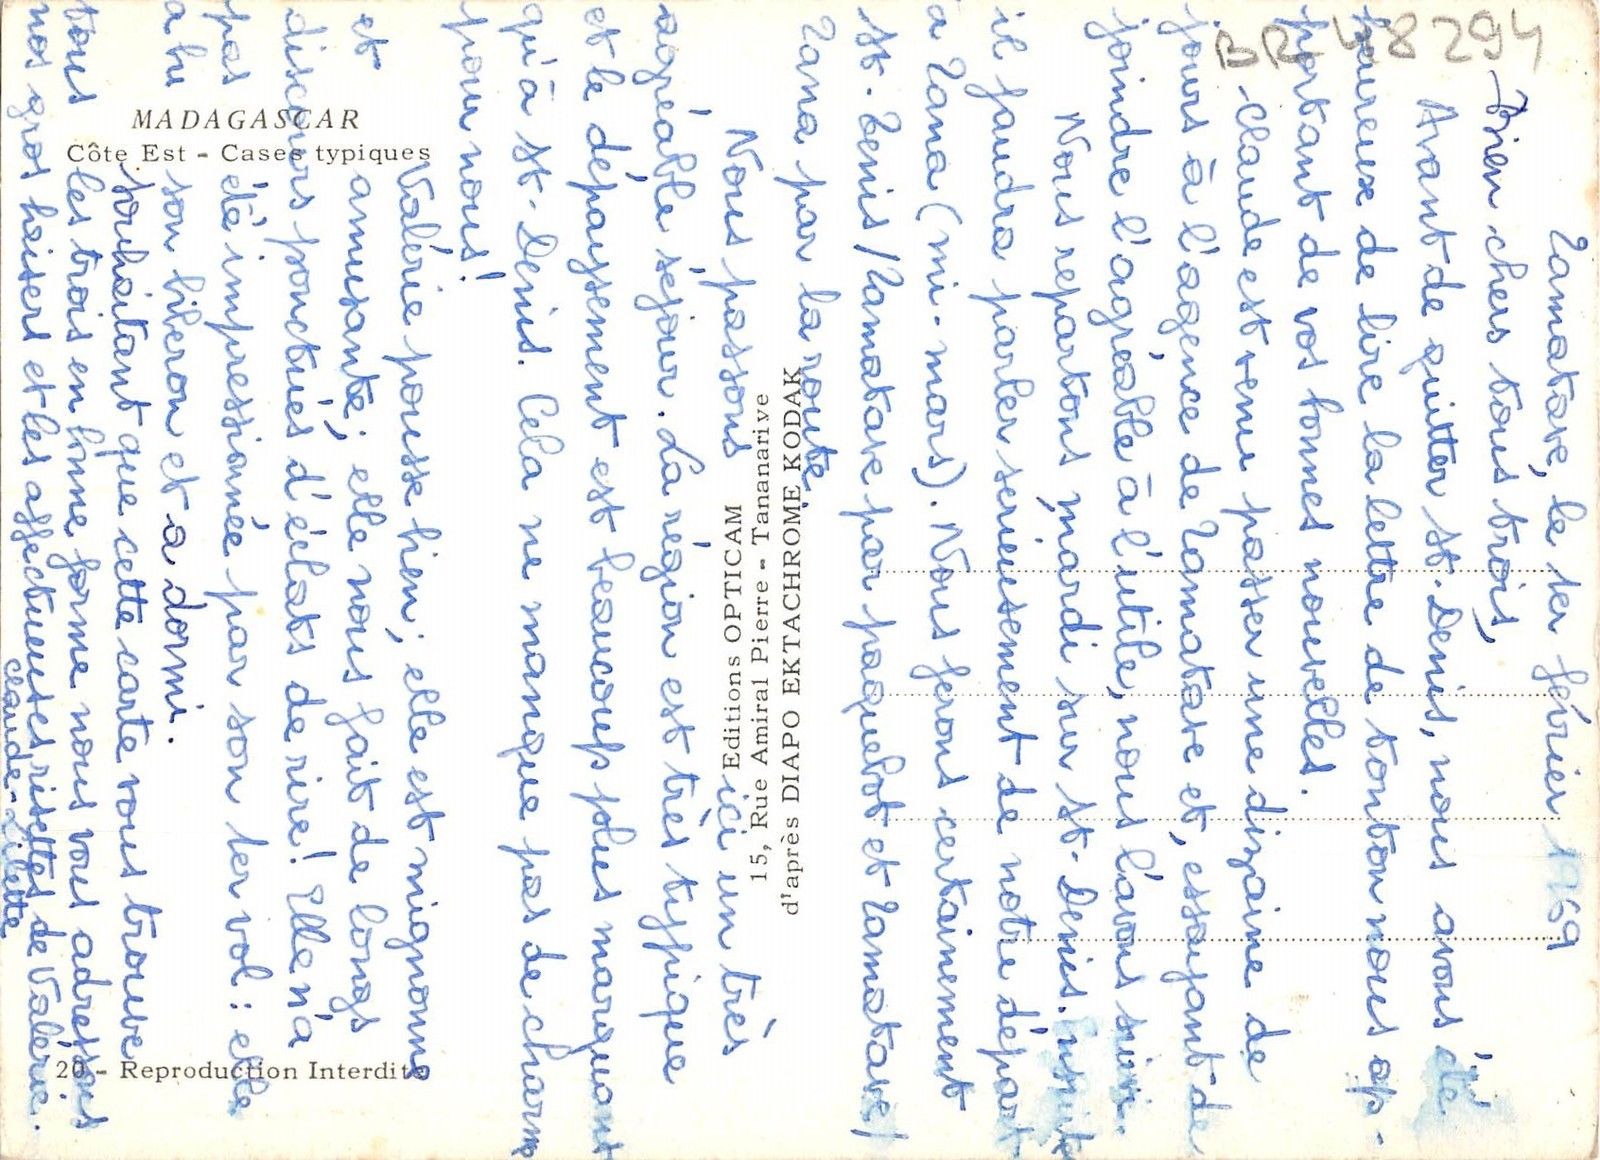 BR 48294
MADAGASCAR
Côte Est - Cases typiques
20 - Reproduction Interdite
Editions OPTICAM
15, Rue Amiral Pierre - Tananarive
d'après DIAPO EKTACHROME KODAK
Tamatave, le 1er février 1969
Bien chers tous trois,
Avant de quitter St-Denis, nous avons été
heureux de lire la lettre de tonton nous ap-
portant de vos bonnes nouvelles.
Claude est venu passer une dizaine de
jours à l'agence de Tamatave et, essayant de
joindre l'agréable à l'utile, nous l'avons suivi.
Nous repartons mardi sur St-Denis. ensuite
il faudra parler sérieusement de notre départ
à Tana (mi-mars). Nous ferons certainement
St-Denis/Tamatave par paquebot et Tamatave/
Tana par la route.
Nous passons ici un très
agréable séjour. La région est très typique
et le dépaysement est beaucoup plus marquant
qu'à St-Denis. Cela ne manque pas de charme
pour nous!
Valérie pousse bien; elle est mignonne
et amusante; elle nous fait de longs
discours ponctués d'éclats de rire! Elle n'a
pas été impressionnée par son 1er vol: elle
a bu son biberon et a dormi.
Souhaitant que cette carte vous trouve
tous les trois en bonne forme nous vous adressons
nos gros baisers et les affectueuses risettes de Valérie.
Claude - Lilette